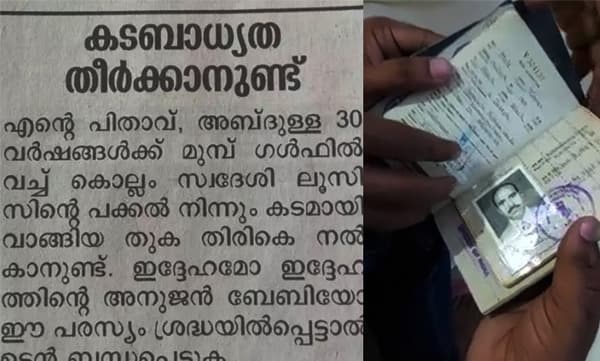 കടബാധ്യത
തീർക്കാനുണ്ട്
എന്റെ പിതാവ്, അബ്ദുള്ള 30
വർഷങ്ങൾക്ക് മുമ്പ് ഗൾഫിൽ
വച്ച് കൊല്ലം സ്വദേശി ലൂസി
സിന്റെ പക്കൽ നിന്നും കടമായി
വാങ്ങിയ തുക തിരികെ നൽ
കാനുണ്ട്. ഇദ്ദേഹമോ ഇദ്ദേഹ
ത്തിന്റെ അനുജൻ ബേബിയോ
ഈ പരസ്യം ശ്രദ്ധയിൽപ്പെട്ടാൽ
ഉടൻ ബന്ധപ്പെടുക